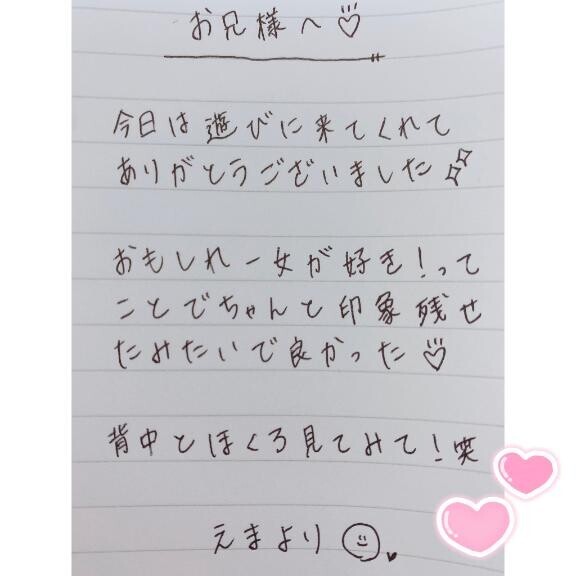 お兄様へ♡
今日は遊びに来てくれて
ありがとうございました
おもしれー女が好き!って
ことでちゃんと印象残せ
たみたいで良かった♡
背中とほくろ見てみて!笑
えまより